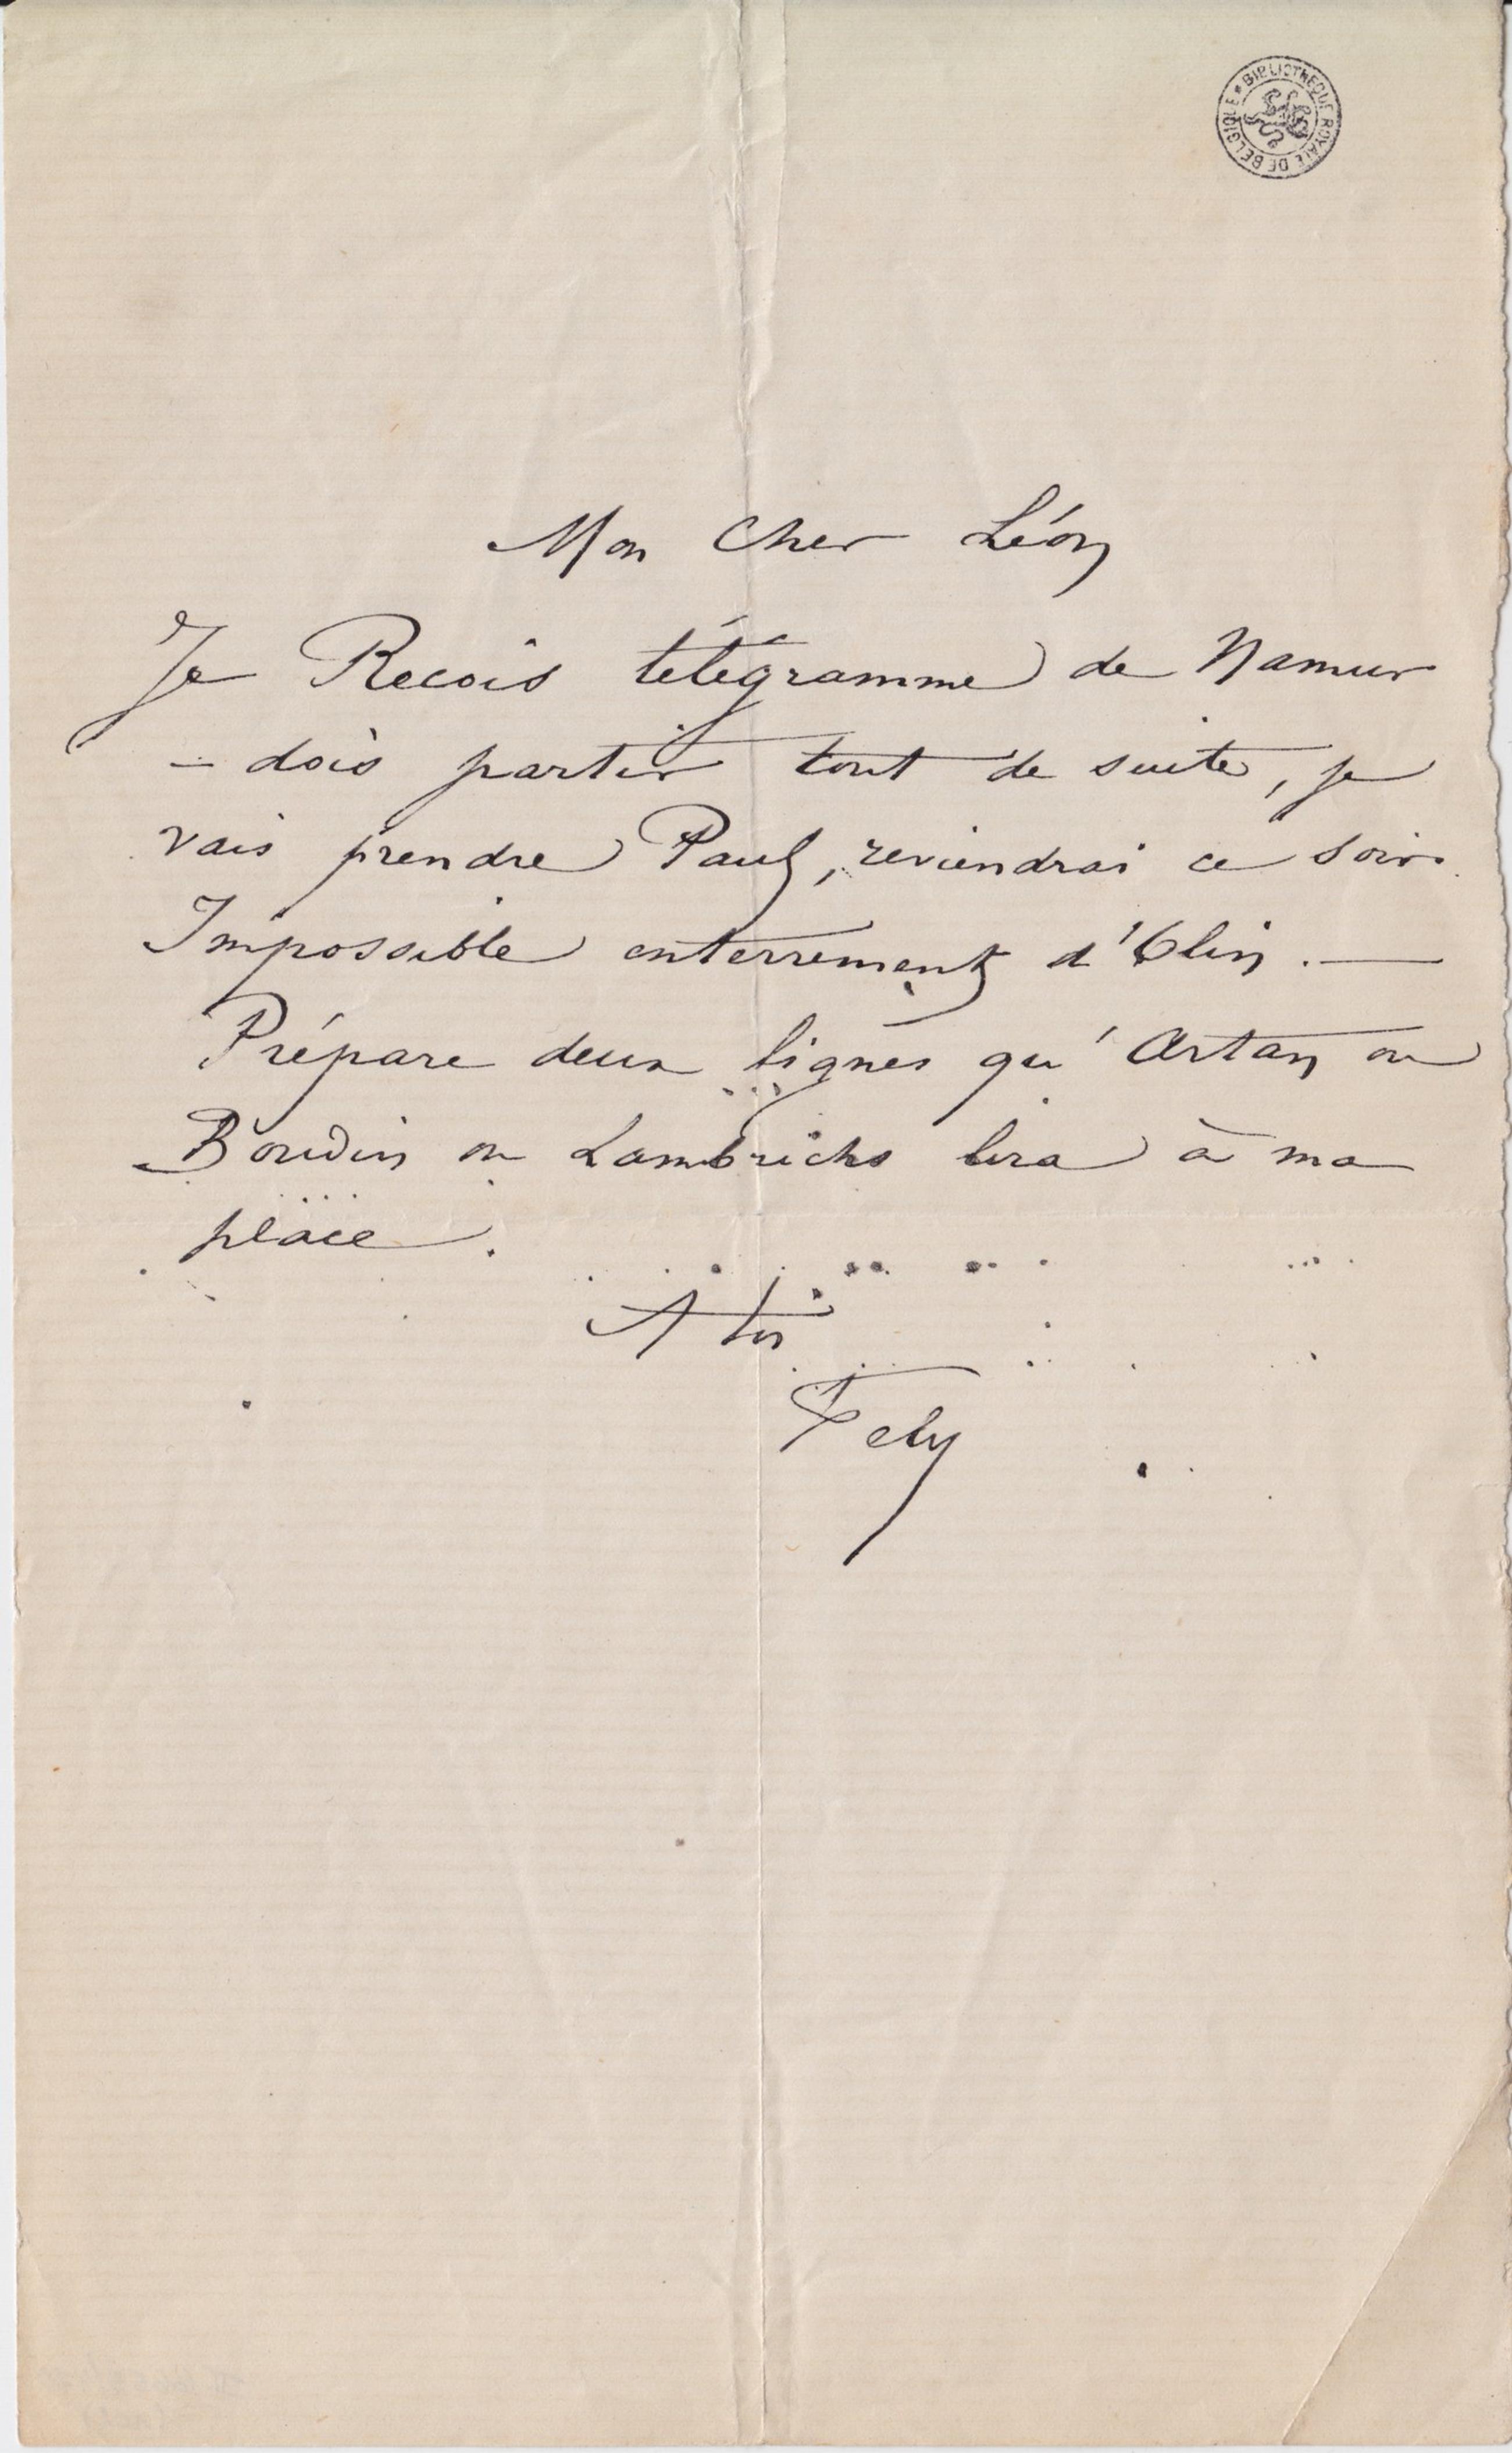 BIBLIOTHEQUE ROYALE DE BELGIQUE
Mon Cher Léon
Je Recois télégramme de Namur
– dois partir tout de suite, je
vais prendre Paul, reviendrai ce soir.
Impossible enterrement d'Olin. —
Prépare deux lignes qu'Artan ou
Boudin ou Lambrichs lira à ma
place.
A toi
Fély